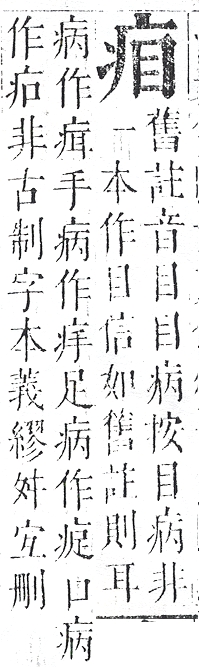 舊註音目目病按目病非
一本作目信如舊註則耳
病作手病作足病作口病
作非古制字本義繆舛宐刪